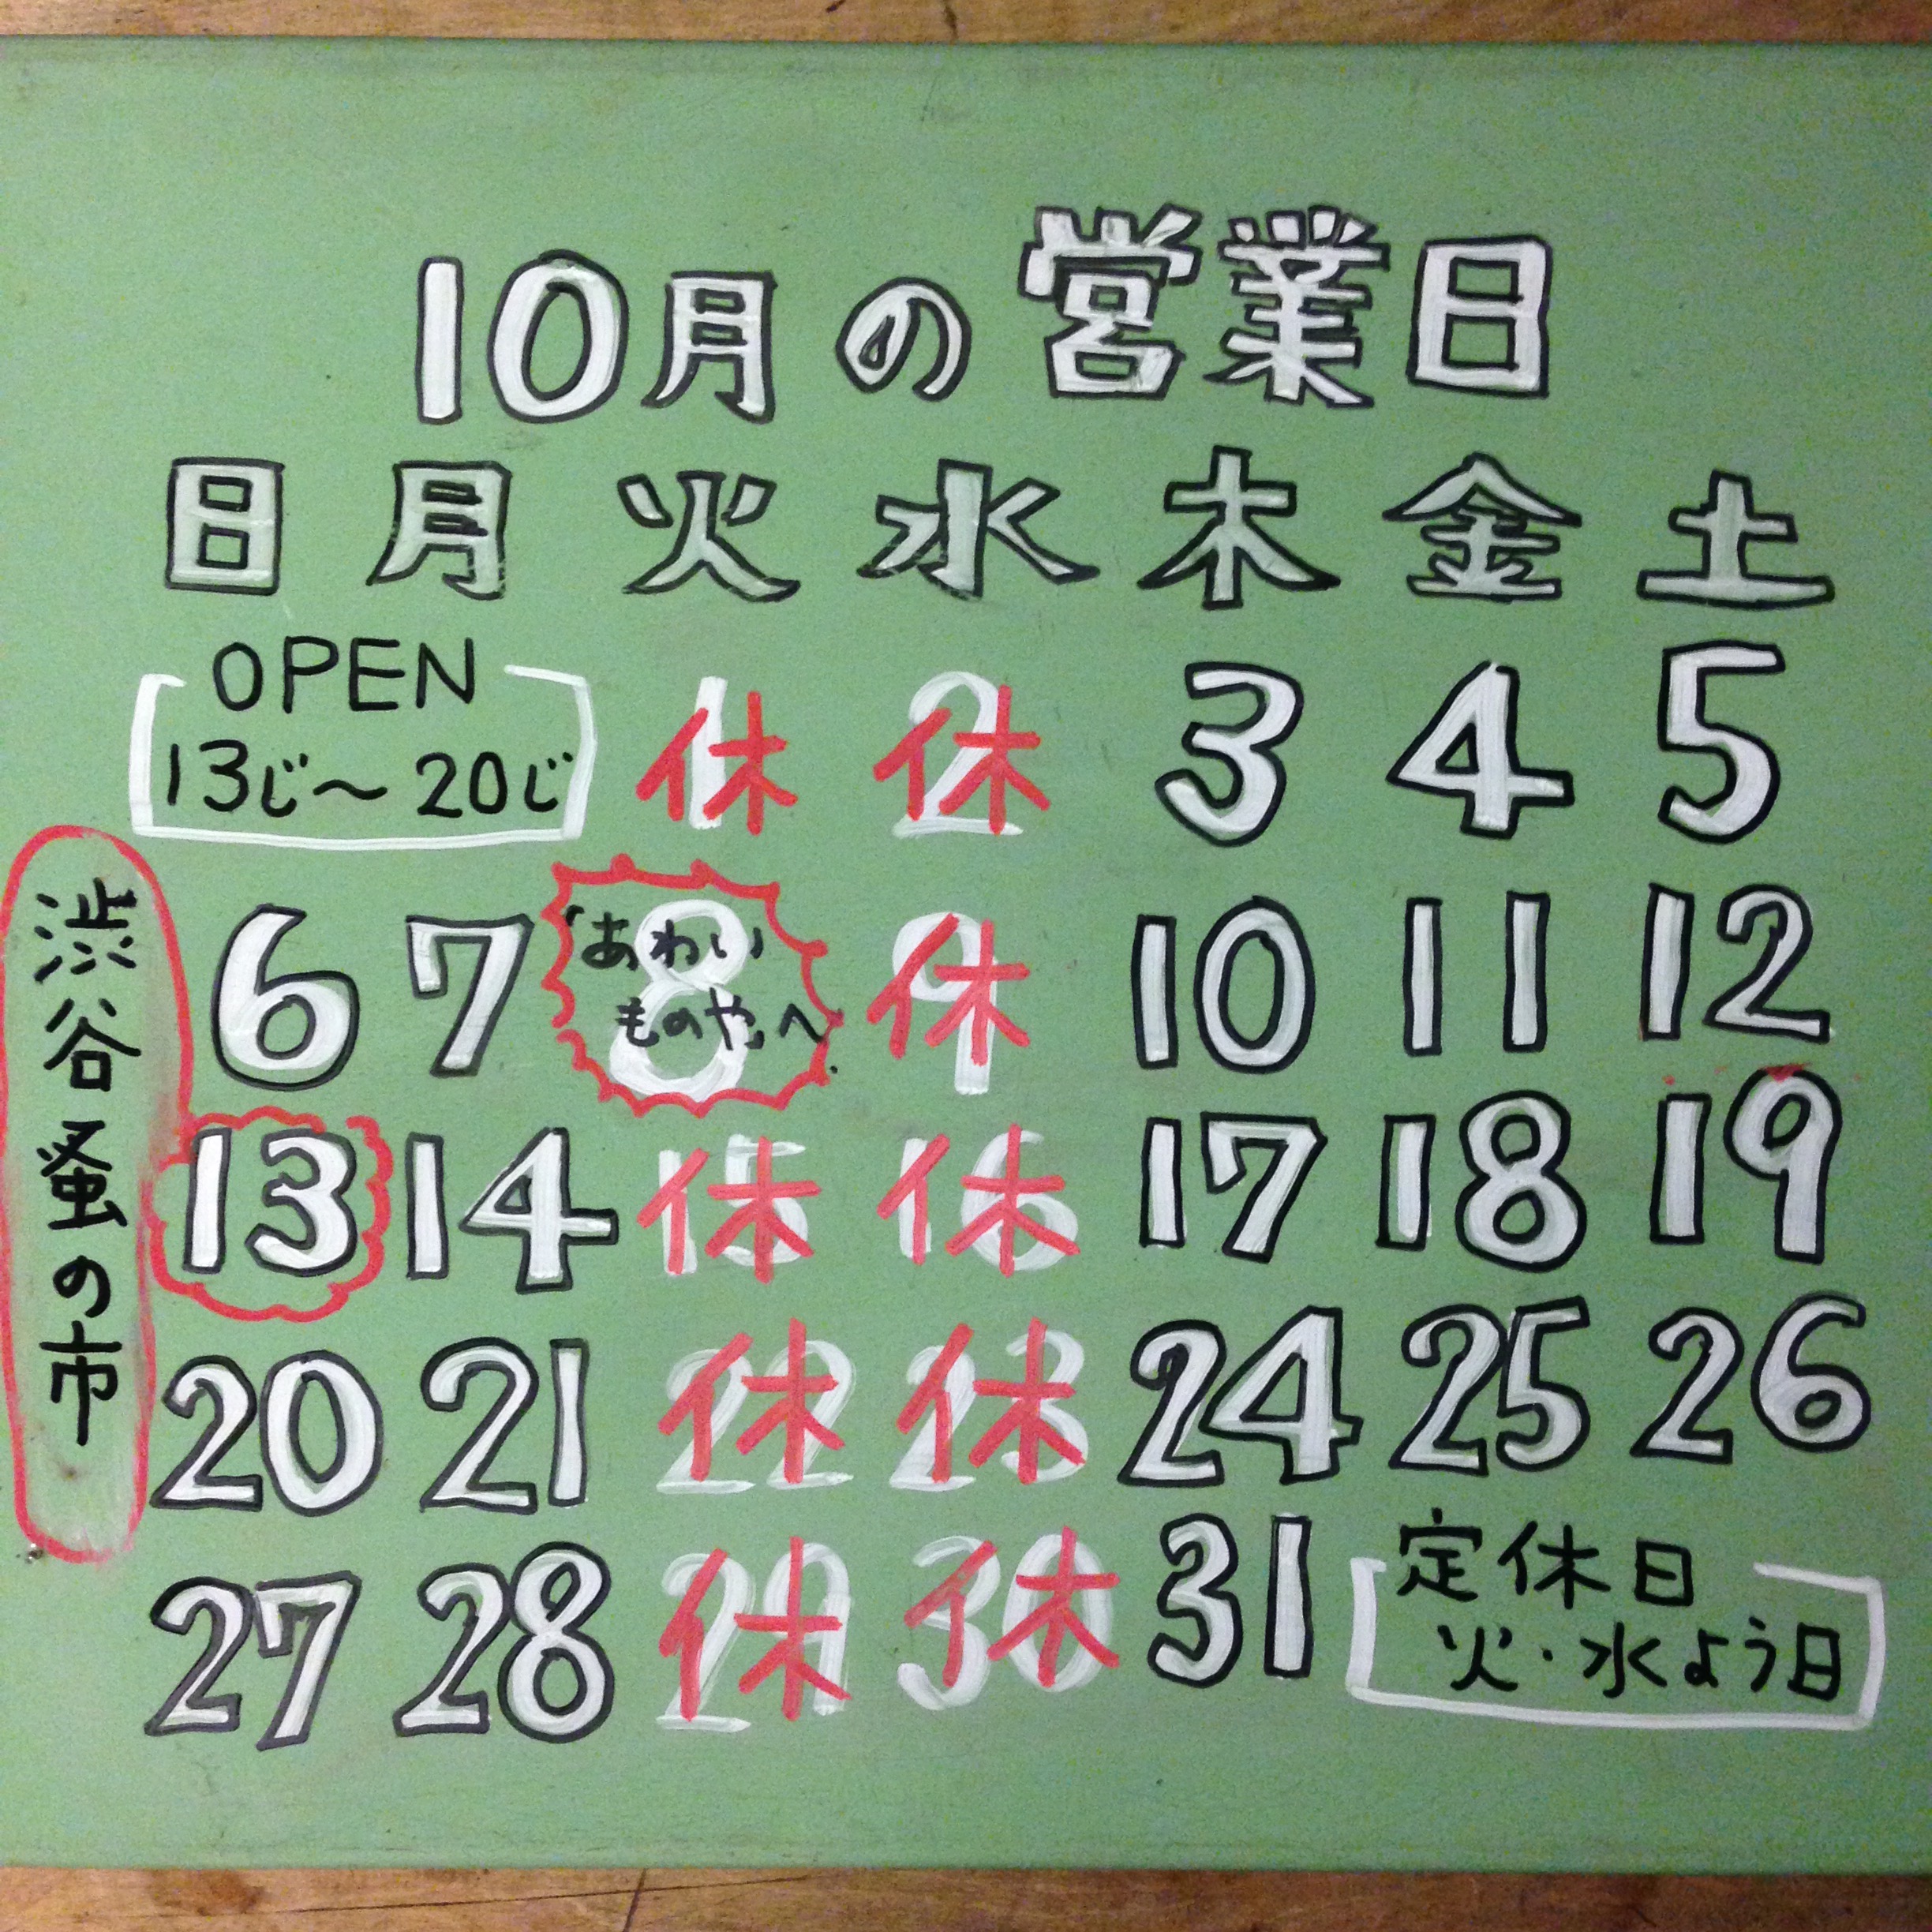 10月の営業日
日 月 火 水 木 金 土
OPEN
13じ〜20じ
1 休 2 休 3 4 5
6 7 8 9 休 10 11 12
「あわい
ものや」へ
渋谷蚤の市
13 14 15 休 16 休 17 18 19
20 21 22 休 23 休 24 25 26
27 28 29 休 30 休 31
定休日
火・水よう日